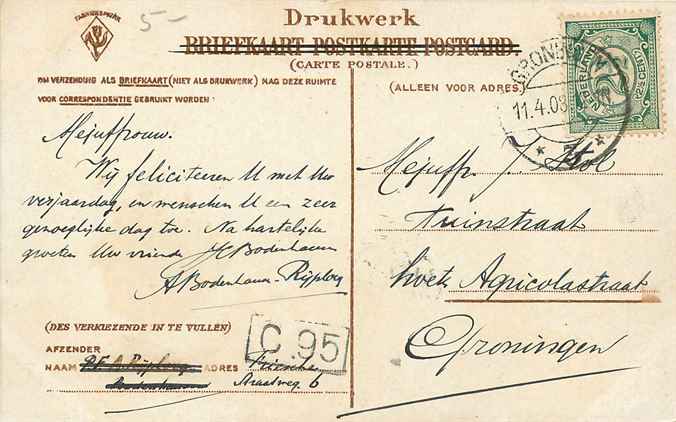 FABRIEKSMERK
5-
Drukwerk
BRIEFKAART POSTKARTE POSTCARD.
(CARTE POSTALE.)
OM VERZENDING ALS BRIEFKAART (NIET ALS DRUKWERK) MAG DEZE RUIMTE
VOOR CORRESPONDENTIE GEBRUIKT WORDEN:
(ALLEEN VOOR ADRES)
NEDERLAND
2½ CENT
11.4.08
Mejuffrouw.
Wij feliciteeren U met Uw
verjaardag, en wenschen U een zeer
genoeglijke dag toe. Na hartelijke
groeten Uw vriend JCBodenhausen
ABodenhausen-Rijpberg
Mejuffr. J. Stol
Tuinstraat
hoek Agricolastraat
Groningen
(DES VERKIEZENDE IN TE VULLEN)
AFZENDER
NAAM
ADRES
Straatweg 6
C.95